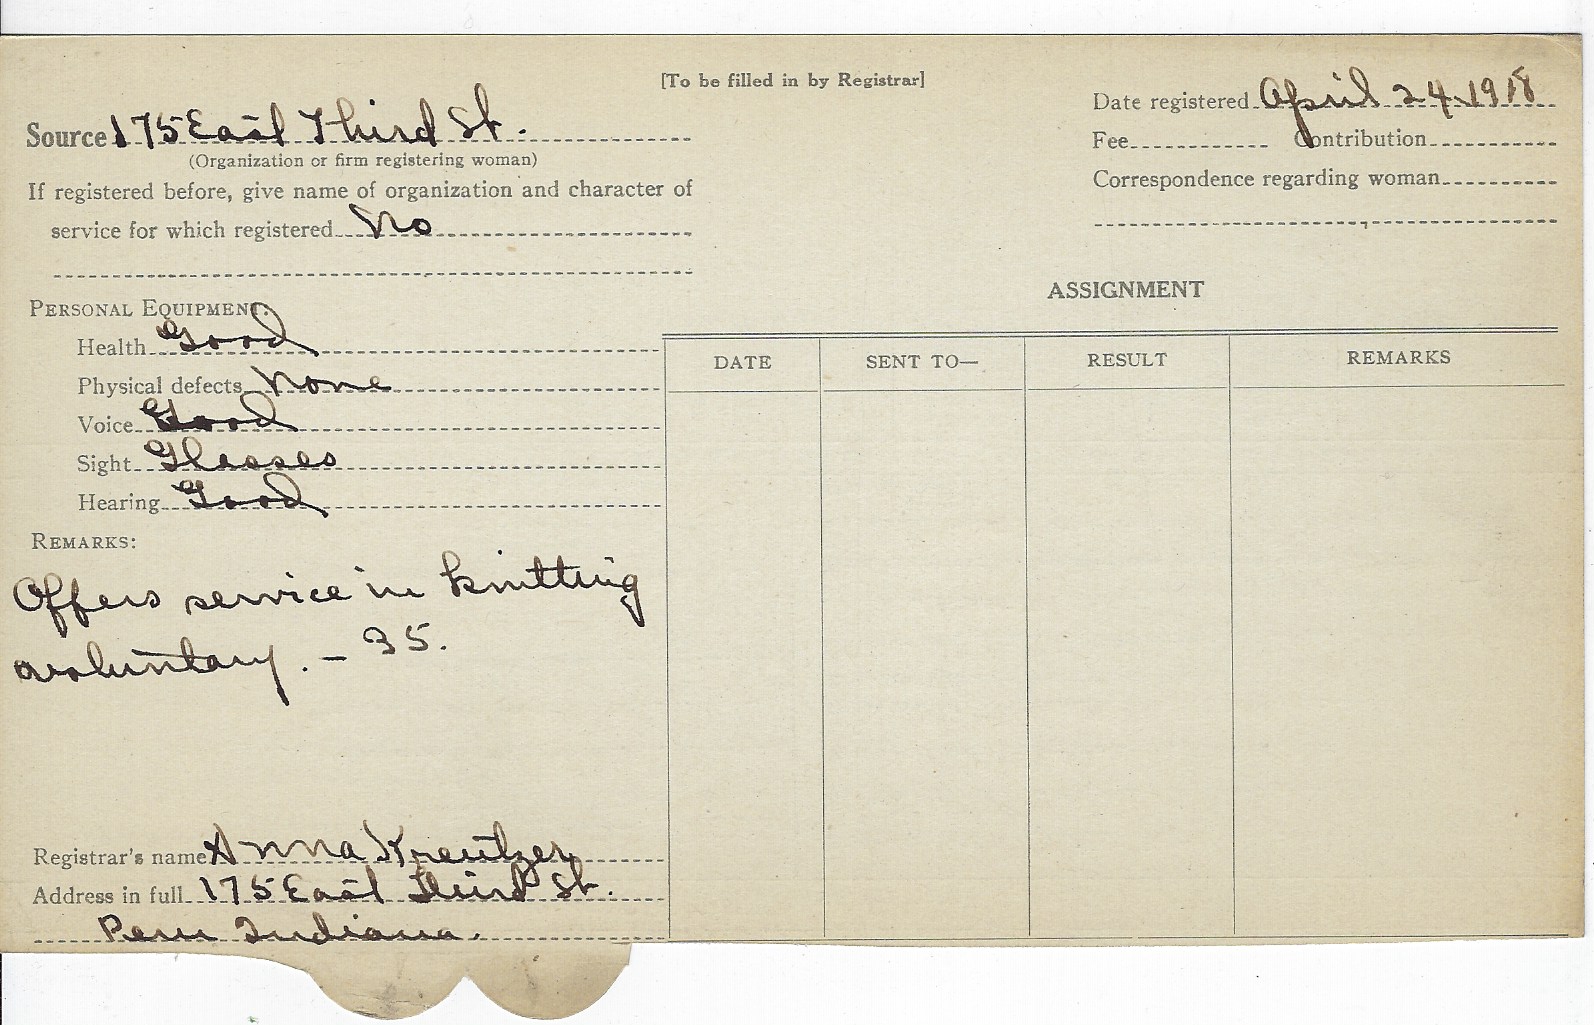 [To be filled in by Registrar]
Source 175 East Third St.
(Organization or firm registering woman)
If registered before, give name of organization and character of
service for which registered No
Date registered April 24, 1918
Fee Contribution
Correspondence regarding woman
PERSONAL EQUIPMENT:
Health Good
Physical defects None
Voice Good
Sight Glasses
Hearing Good
REMARKS:
Offers service in knitting
voluntary. – 35.
Registrar's name Anna Kreutzer
Address in full 175 East Third St.
Peru Indiana.
ASSIGNMENT
DATE SENT TO— RESULT REMARKS